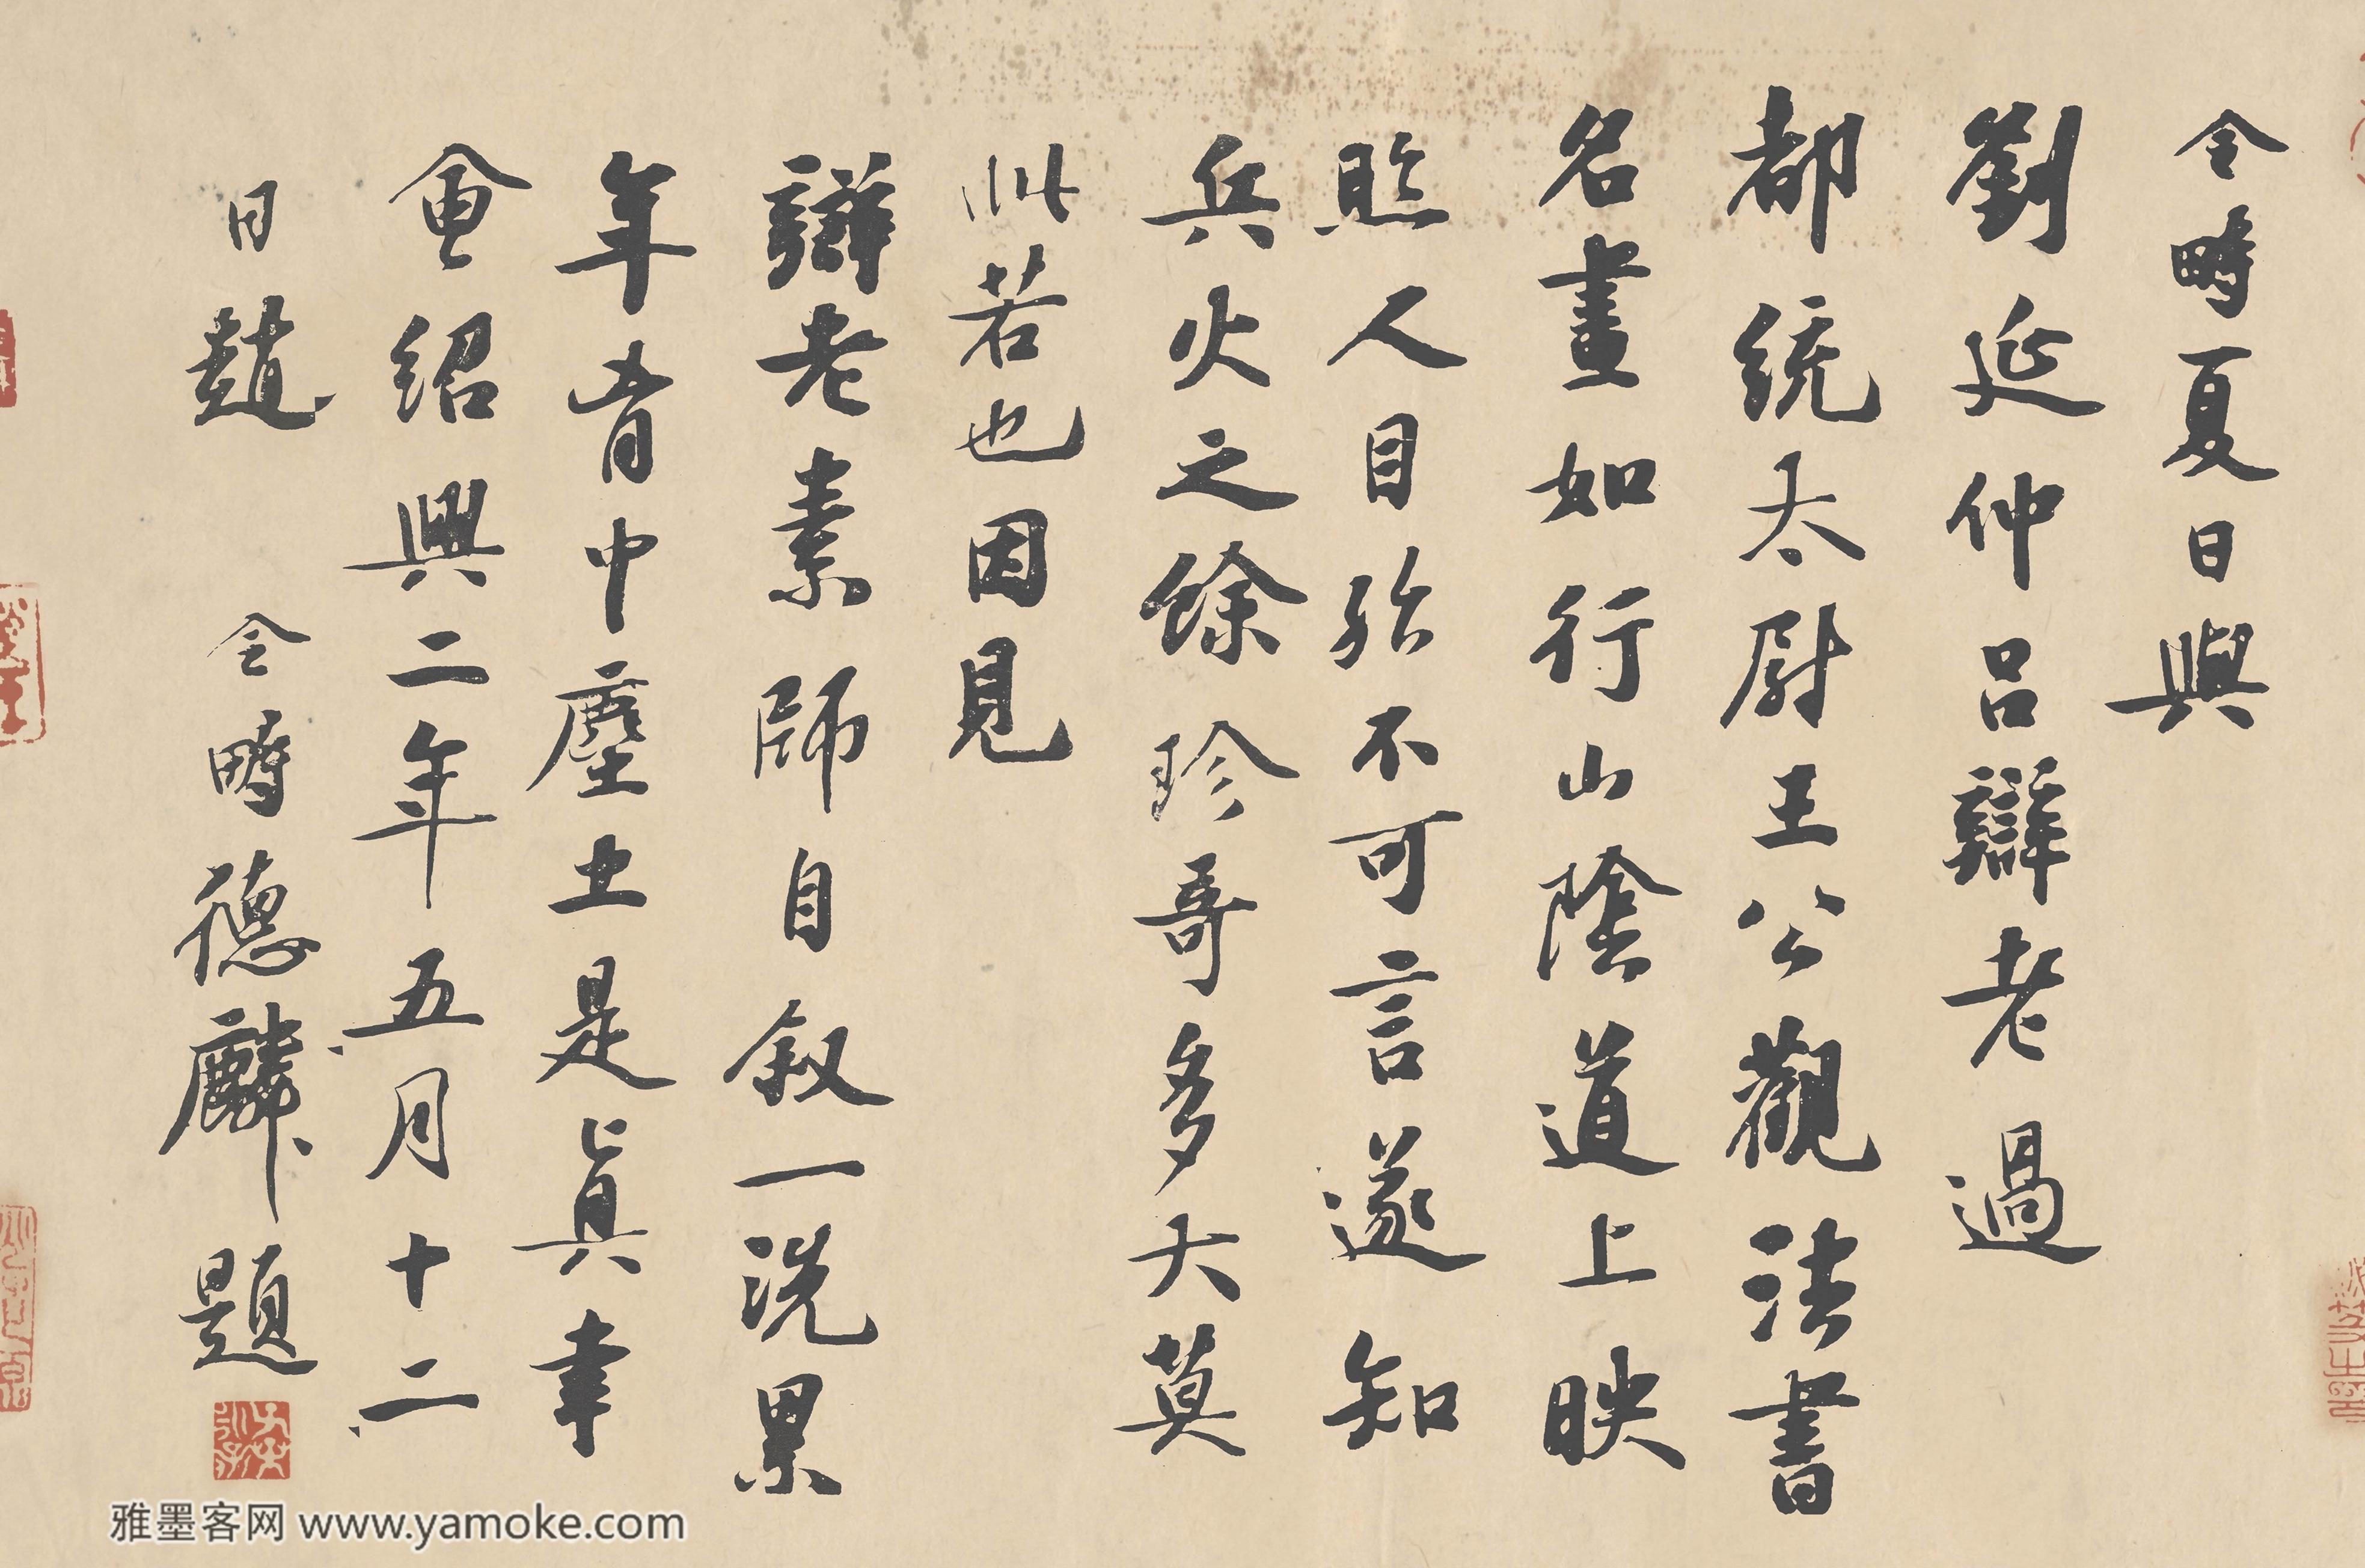 令畤夏日與
劉延仲呂辯老過
都統太尉王公觀法書
名畫如行山陰道上映
照人目殆不可言遂知
兵火之餘珍竒多大莫
此若也因見
辯老素師自叙一洗累
年胷中塵土是眞幸
會紹興二年五月十二
日趙 令畤德麟題
雅墨客网 www.yamoke.com